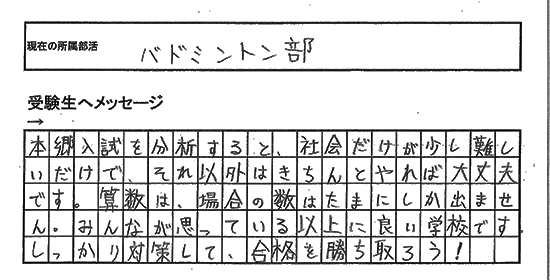 現在の所属部活
バドミントン部
受験生へメッセージ
→
本郷入試を分析すると、社会だけが少し難し
いだけで、それ以外はきちんとやれば大丈夫
です。算数は、場合の数はたまにしか出ませ
ん。みんなが思っている以上に良い学校です。
しっかり対策して、合格を勝ち取ろう!